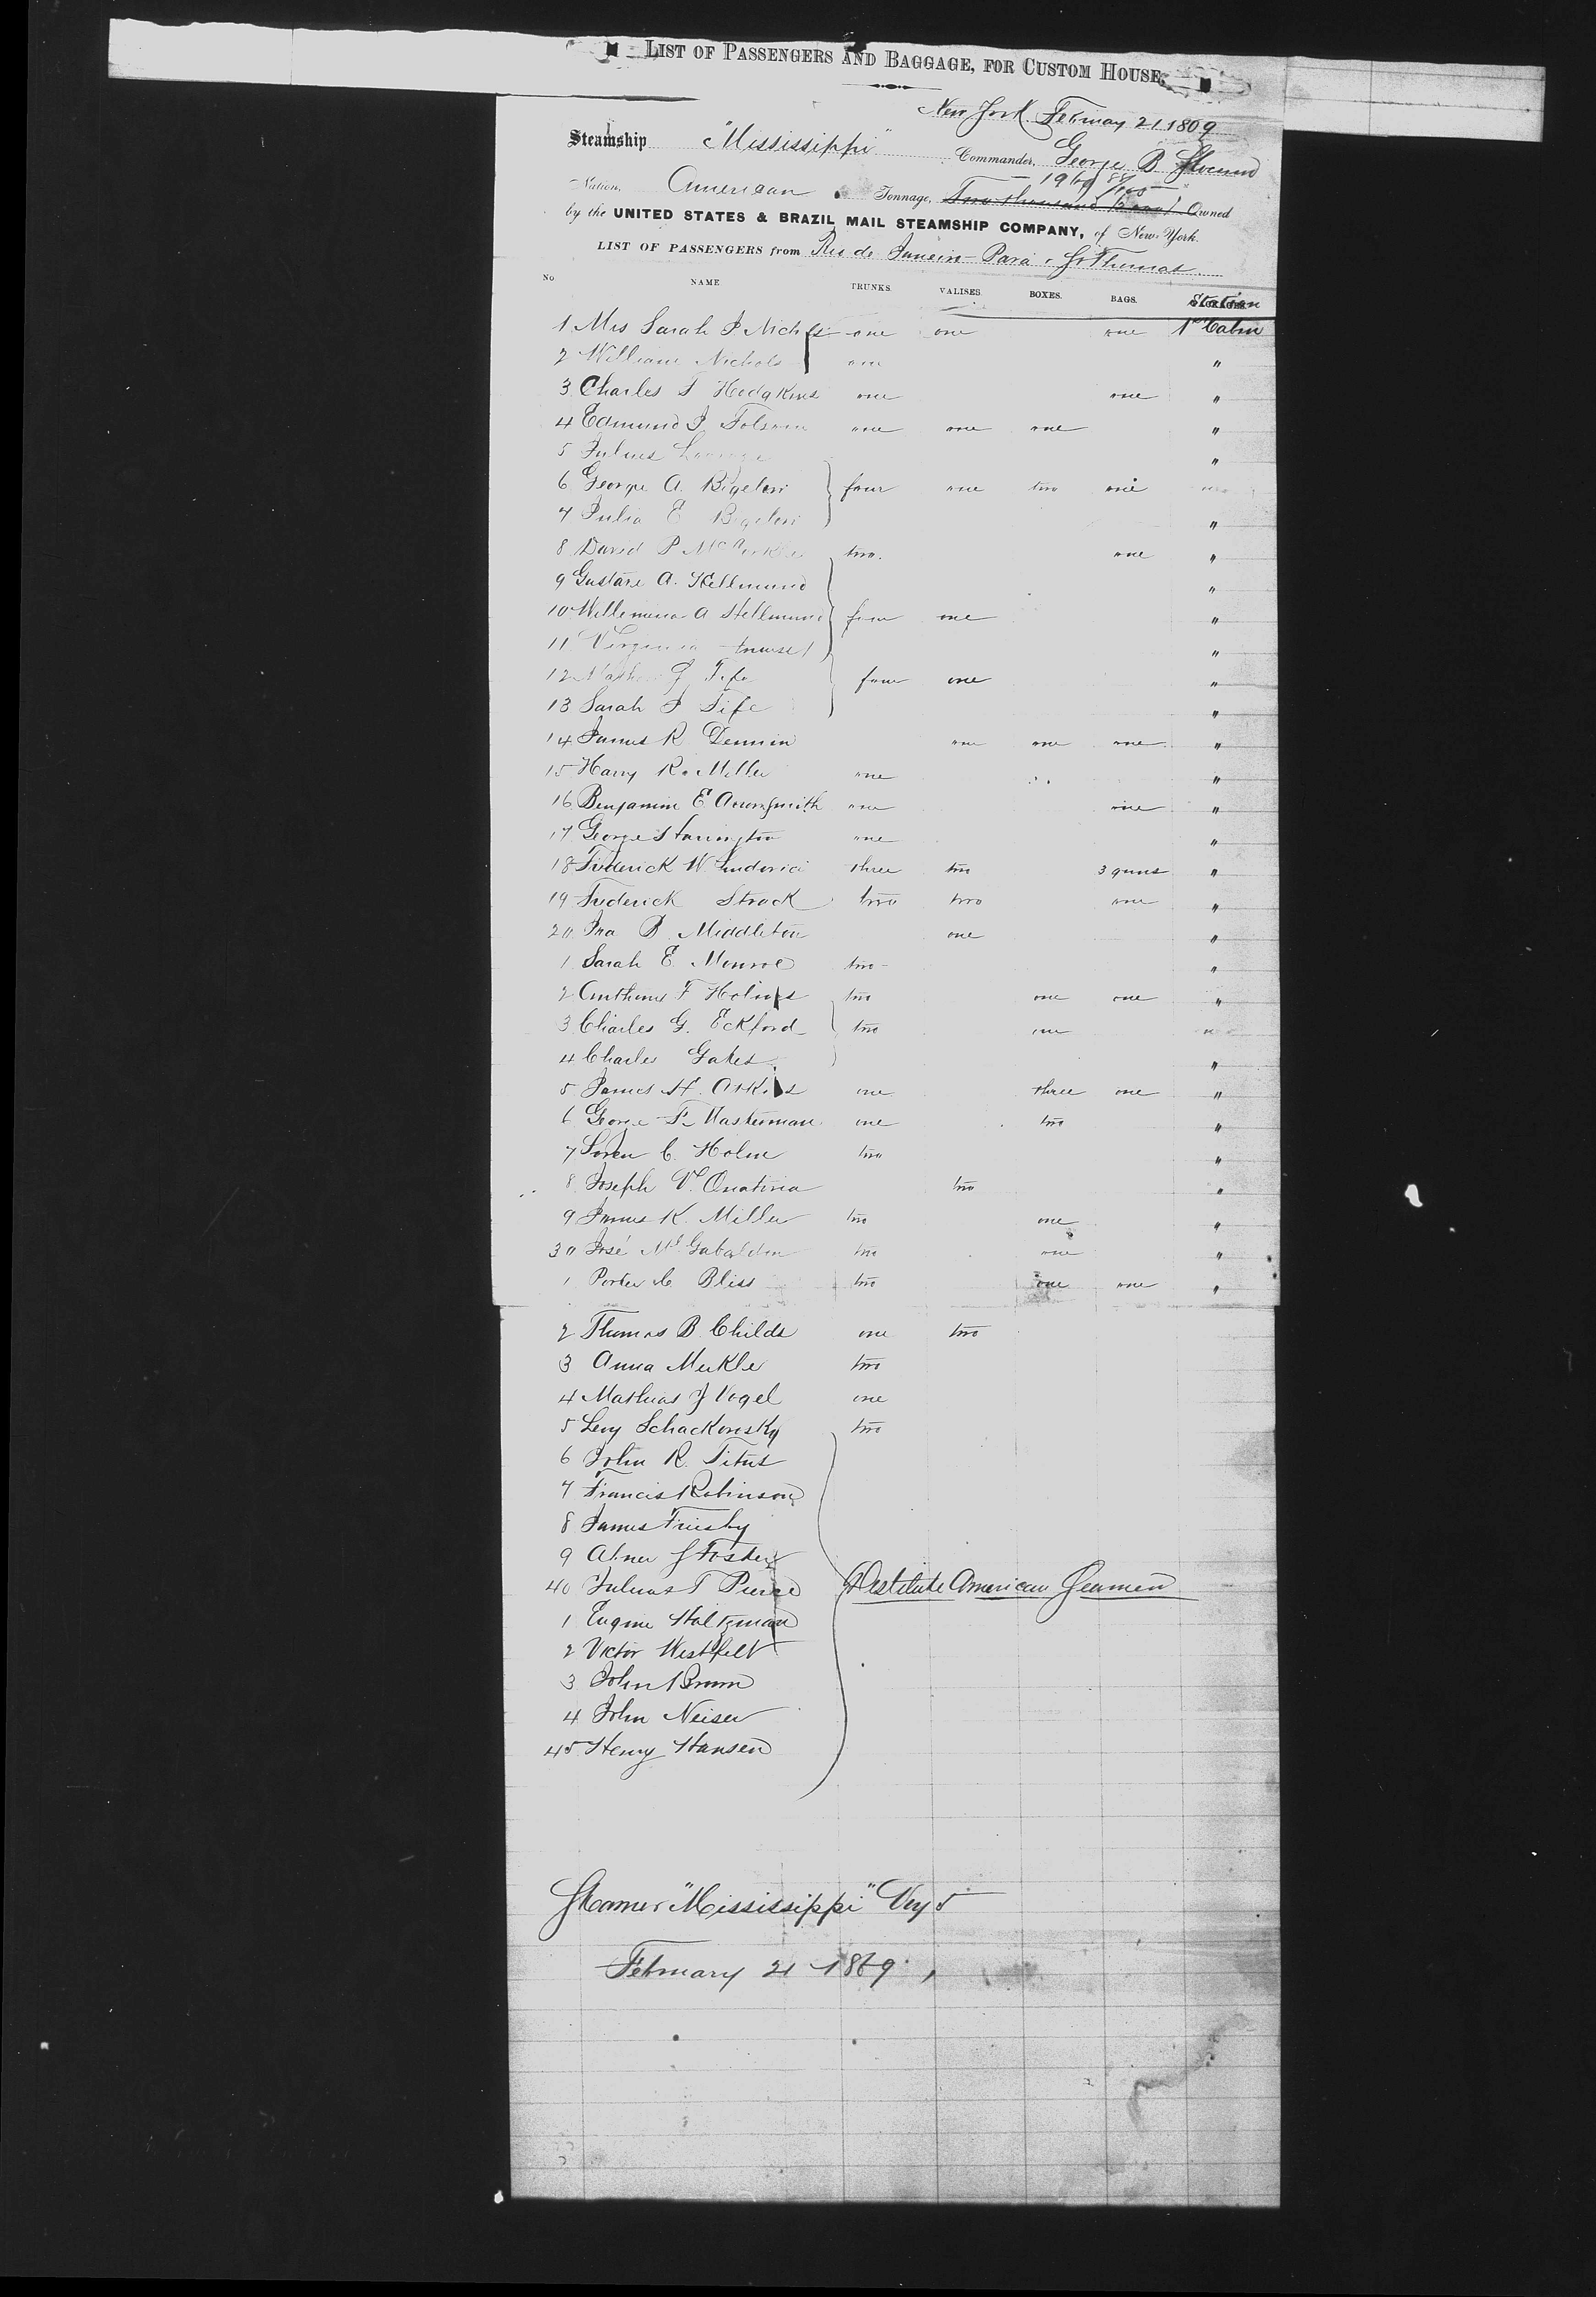 LIST OF PASSENGERS AND BAGGAGE, FOR CUSTOM HOUSE.
New York. February 21 1869
Steamship "Mississippi" Commander, George B Slocum
Nation, American Tonnage, Two thousand Owned
by the UNITED STATES & BRAZIL MAIL STEAMSHIP COMPANY, of New-York.
LIST OF PASSENGERS from Rio de Janeiro Para & St Thomas
No NAME TRUNKS. VALISES. BOXES. BAGS. Station
1 Mrs Sarah J Nichols one one one 1st Cabin
2 William Nichols one "
3 Charles T Hodgkins one one "
4 Edmund J Folsom one one one "
5 Julius "
6 George A. Bigelow four one two one
7 Julia E Bigelow "
8 David P two. one "
9 Gustave A. Hellmund "
10 Willemina A Hellmund four one "
11 Virginia "
12 J Fife four one "
13 Sarah J Fife "
14 James R Dennin one one one "
15 Harry R. Miller one "
16 Benjamin E Arrowsmith one one "
17 George Harrington one "
18 Frederick W. Ludovici three two 3 guns "
19 Frederick Strack two two one "
20 Ira B Middleton one "
1 Sarah E Monroe two "
2 Anthony F Holmes two one one "
3 Charles G. Eckford two one
4 Charles Gates "
5 James H. one three one "
6 George F. Masterman one two "
7 Soren C. Holm two "
8 Joseph two "
9 James K. Miller two one "
30 José Ml Gabaldon two one "
1 Porter C Bliss two one one "
2 Thomas B. Childs one two
3 Anna Merkle two
4 Mathias J Vogel one
5 Levy Schackowsky two
6 John R. Titus
7 Francis Robinson
8 James Frisby
9 Abner J Foster
40 Julius T Pierce Destitute American Seamen
1 Eugine Holtzman
2 Victor Westfelt
3 John Brown
4 John Neiser
45 Henry Hansen
Steamer "Mississippi" Voy 5
February 21 1869